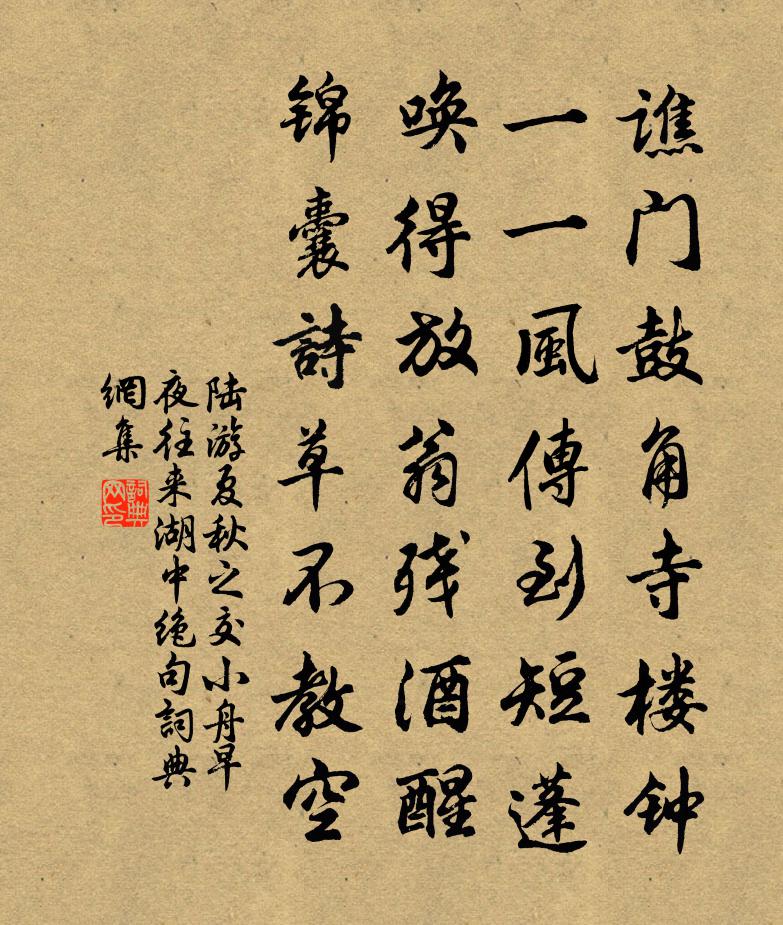 谯门鼓角寺楼钟
一一風傳到短蓬
唤得放翁残酒醒
锦囊詩草不教空
陆游夏秋之交小舟早
夜往来湖中绝句詞典
網集
詞典
网印